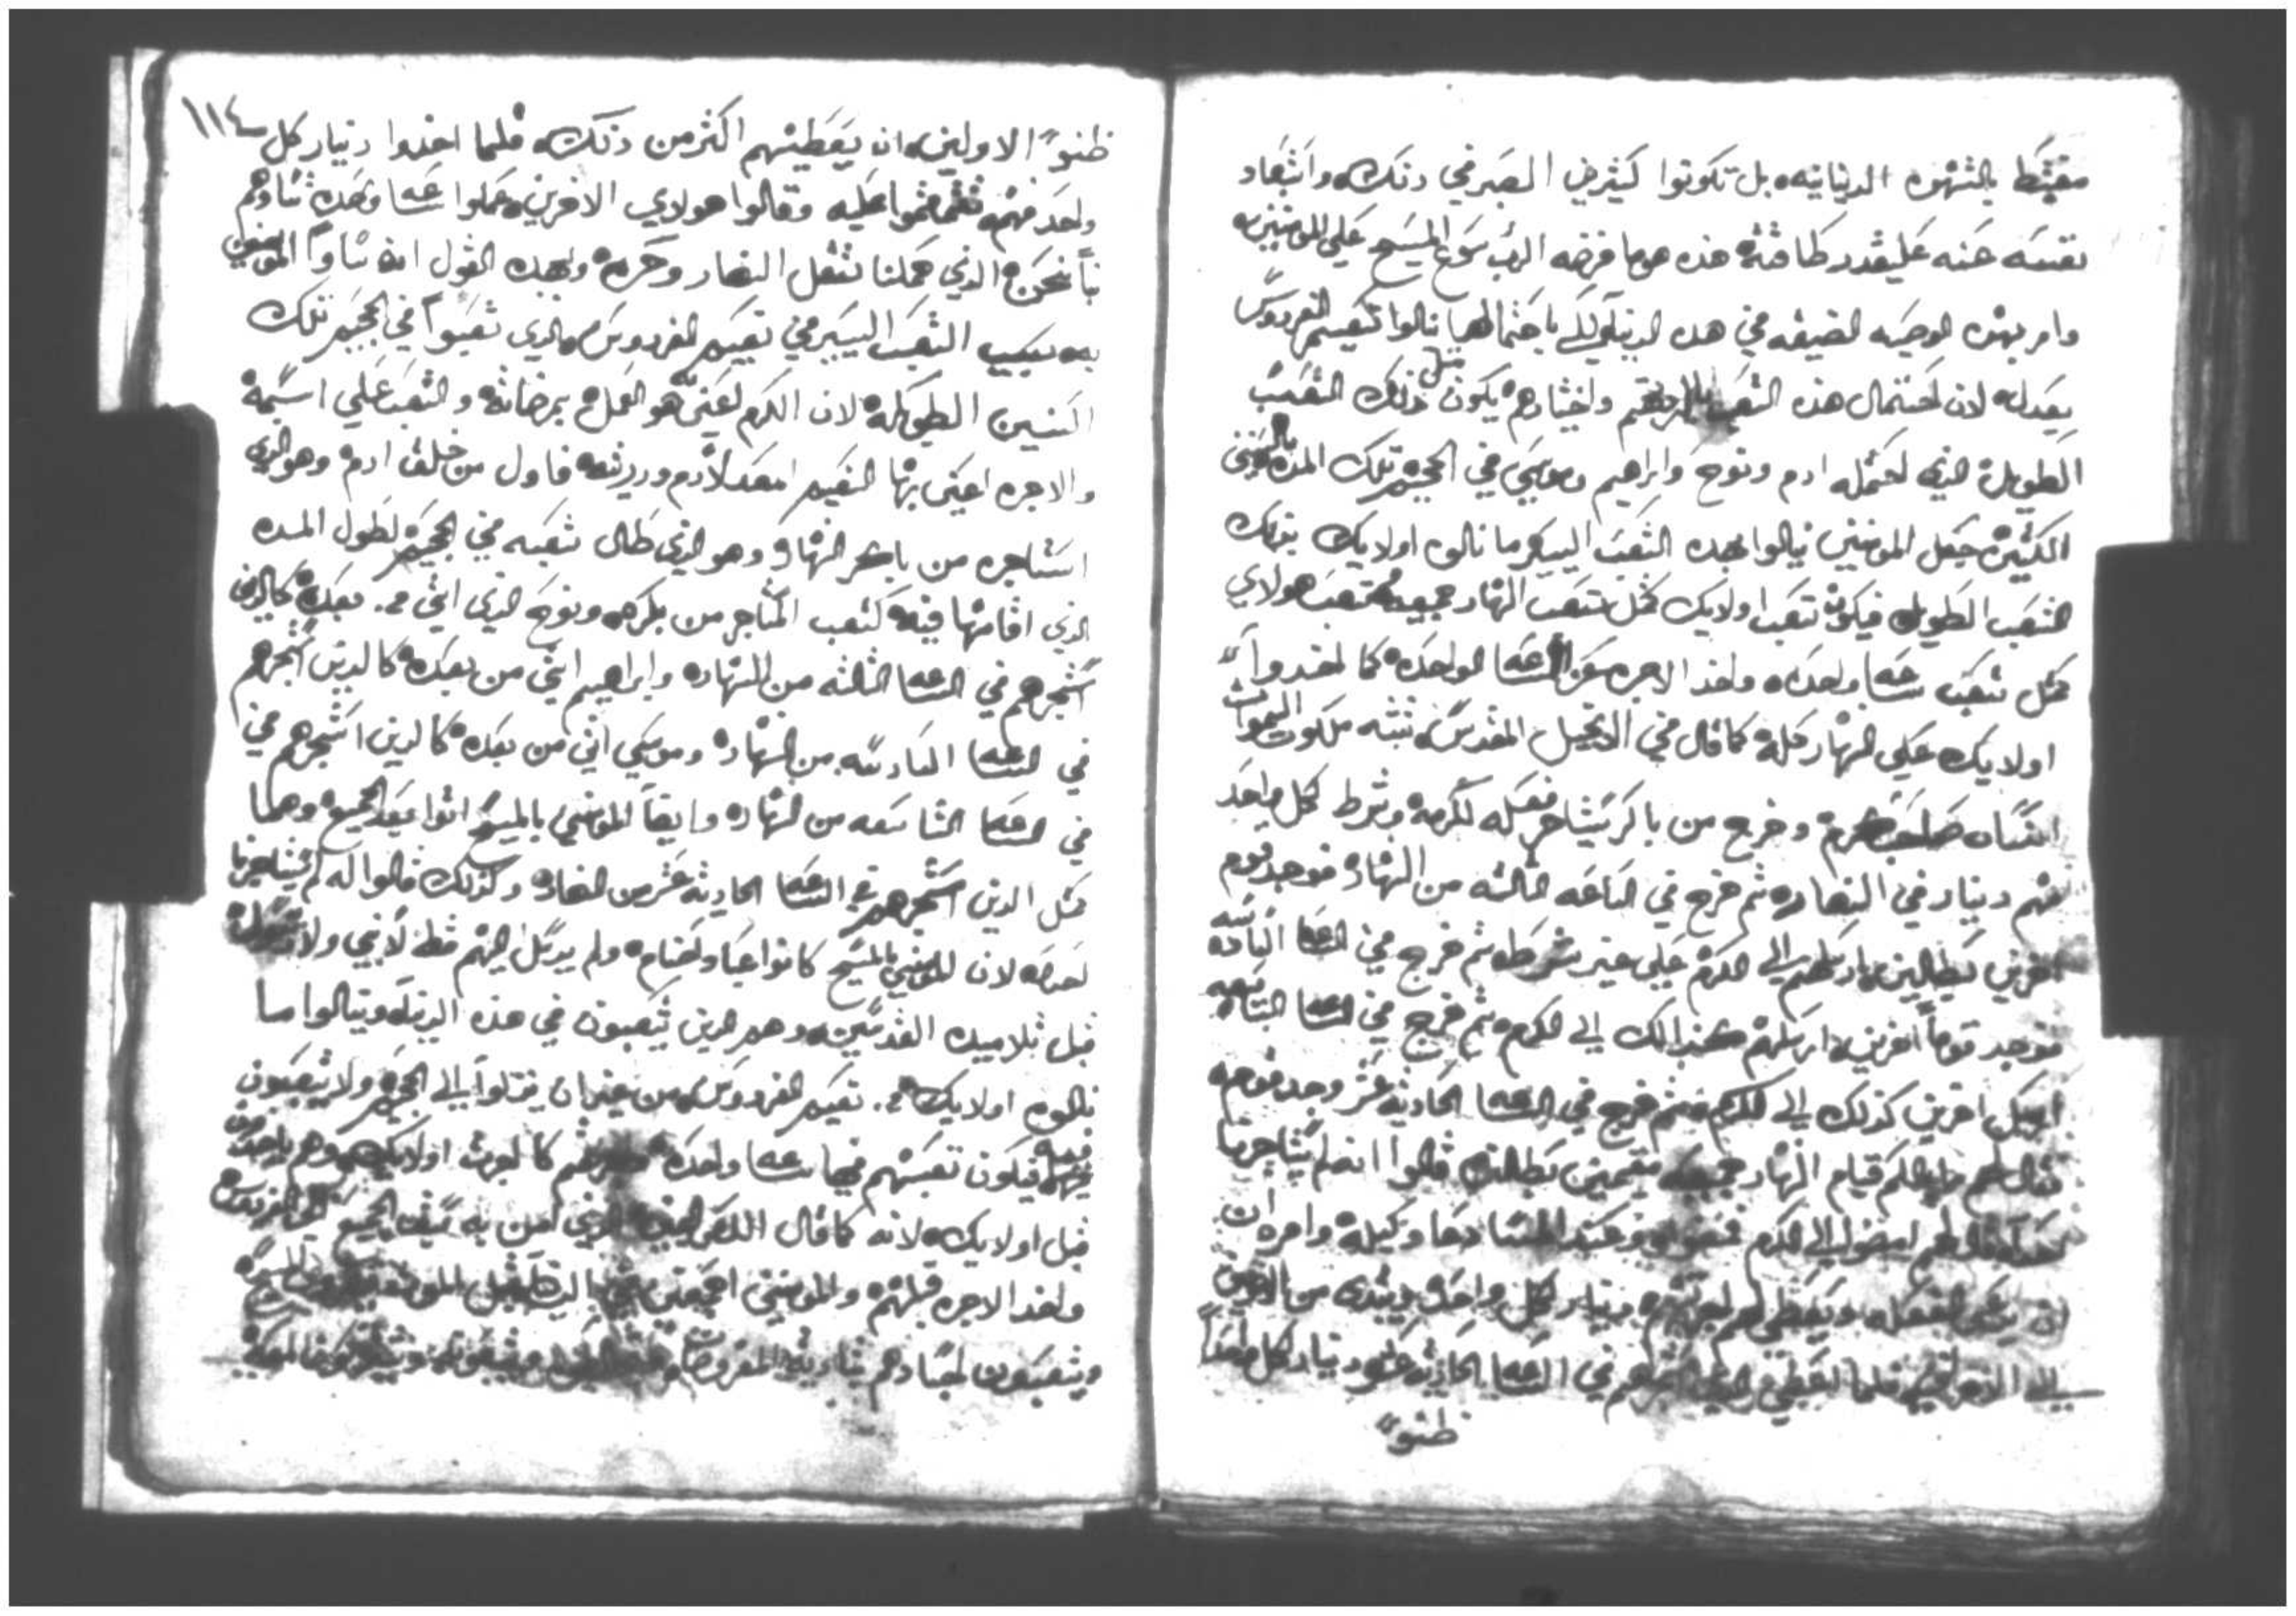 مغتبط بالشهوه الدنيانيه بل تكونوا كثيرين الصبر في ذلك واتبعاد
نفسه عنه علي قدر طاقته هذه هي ما فرضه الرب يسوع المسيح علي المومنين به
وامر بهذه الوصيه الضيقه في هذه الدنيا لكي باحتمالها ينالوا نعيم الفردوس
بعدله لان احتمال هذه التعب واختيارهم يكون مثل ذلك التعب
الطويل الذي احتمله ادم ونوح وابراهيم وموسي في الجحيم تلك المده السنين
الكثيره جعل المومنين ينالوا بهذه التعب اليسير ما نالوه اولايك بذلك
التعب الطويل فيكون تعب اولايك كمثل تعب النهار جميعه وتعب هولاي
كمثل تعب ساعه واحده واخذ الاجره عن الساعه الواحده كما اخذوا
اولايك علي النهار كله كما قال في الانجيل المقدس تشبه ملكوت السموات
انسان صاحب كرم وخرج من باكر يستاجر فعله لكرمه وشرط كل واحد
منهم دينار في النهار ثم خرج في الساعه الثالثه من النهار فوجد قوم
اخرين بطالين ارسلهم الي الكرم علي غير شرط ثم خرج في الساعه السادسه
فوجد قوماً اخرين ارسلهم كذالك الي الكرم ثم خرج في الساعه التاسعه
ارسل اخرين كذلك الي الكرم ثم خرج في الساعه الحاديه عشر وجد قوم
فقال لهم ما بالكم قيام النهار جميعه مقيمين بطالين قالوا انه لم يستاجرنا
احد قال لهم امضوا الي الكرم وعند المسا دعا وكيله وامره ان
يدعي الفعله ويعطي لهم اجرتهم دينار لكل واحد ويبتدي من الاخرين
الي الاولين فلما اعطي الذين استاجرهم في الساعه الحاديه عشر دينار كل واحداً
ظنوا
١١٤
ظنوا الاولين انه يعطيهم اكثر من ذلك فلما اخذوا دينار كل
واحد منهم تقمقموا عليه وقالوا هولاي الاخرين عملوا ساعه واحده تساويهم
بنا نحن الذي حملنا تثقل النهار وحره وبهذه القول انه ساوا المومنين
به بسبب التعب اليسير في نعيم الفردوس بالذي تعبوا في الجحيم تلك
السنين الطويله لان الكرم اعني هو العمل بمرضاته والتعب علي اسمه
والاجره اعني بها النعيم المعد لادم وذريته فاول من خلق ادم وهو الذي
استاجره من باكر النهار وهو الذي طال تعبه في الجحيم لطول المده
الذي اقامها فيه كتعب المستاجر من بكره ونوح الذي اتي بعده كالذي
استجرهم في الساعه الثالثه من النهار وابراهيم اتي من بعده كالذين استجرهم
في الساعه السادسه من النهار وموسي اتي من بعده كالذين استجرهم في
في الساعه التاسعه من النهار وايضاً المومنين بالمسيح اتوا بعد الجميع وهما
مثل الذين استجرهم في الساعه الحاديه عشر من النهار وكذلك قالوا له لم يستاجرنا
احد لان المومنين بالمسيح كانوا عباد اصنام ولم يرسل اليهم قط لا نبي ولا رسول
قبل تلاميده القديسين وهم الذين يتعبون في هذه الدنيا وينالوا ما
نالوه اولايك نعيم الفردوس من غير ان ينزلوا الي الجحيم ولا يتعبون
فيه فيكون تعبهم فيها ساعه واحده كاجرة اولايك وهم ياخذون
قبل اولايك لانه كما قال اللص اليمين الذي امن به سبق الجميع الي الفردوس
واخد الاجره قبلهم والمومنين اجمعين
ويتعبون اجسادهم بتاديه المفروضات